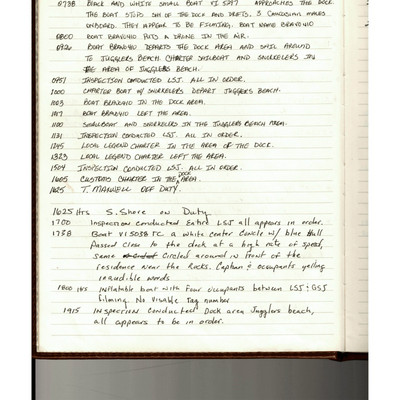 0738 BLACK AND WHITE SMALL BOAT VI 5297 APPROACHES THE DOCK.
THE BOAT STOPS SW OF THE DOCK AND DRIFTS. 3 CAUCASIAN MALES
ONBOARD. THEY APPEAR TO BE FILMING. BOAT NAME BRAVO410
0800 BOAT BRAVO410 PUTS A DRONE IN THE AIR.
BOAT BRAVO410 DEPARTS THE DOCK AREA AND SAIL AROUND
TO JUGGLERS BEACH. CHARTER SAILBOAT AND SNORKELERS IN
AREA OF JUGGLERS BEACH.
0951 INSPECTION CONDUCTED LSJ. ALL IN ORDER.
1000 CHARTER BOAT W/ SNORKELERS DEPART JUGGLERS BEACH.
1003 BOAT BRAVO410 IN THE DOCK AREA.
1017 BOAT BRAVO410 LEFT THE AREA.
1100 SAILBOAT AND SNORKELERS IN THE JUGGLERS BEACH AREA.
1131 INSPECTION CONDUCTED LSJ. ALL IN ORDER.
1245 LOCAL LEGEND CHARTER IN THE AREA OF THE DOCK.
1323 LOCAL LEGEND CHARTER LEFT THE AREA.
1504 INSPECTION CONDUCTED LSJ. ALL IN ORDER.
1605 CUSTOMS CHARTER IN THE DOCK AREA.
1625 T. MAXWELL OFF DUTY.
1625 Hrs S. Shore on Duty
1700 Inspection conducted Entire LSJ all appears in order.
1738 Boat VI 5038 TC a white Center Concle w/ blue Hull
Passed close to the dock at a high rate of speed,
same Circled around in front of the
residence near the Rocks. Captan & occupants yelling
inaudible words
1800 Hrs Inflatable boat with Four occupants between LSJ & GSJ
filming. No Visable Tag number
1915 Inspection Conducted Dock area Jugglers beach,
all appears to be in order.